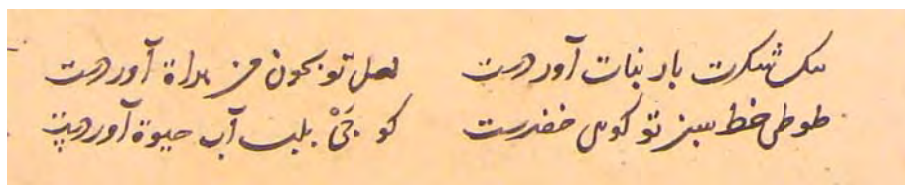 تنک شکرت بار نبات آوردست لعل تو بخون من براة آوردست
طوطی خط سبز تو کویی خضرست کو پَیْ بلب آب حیوة آوردست